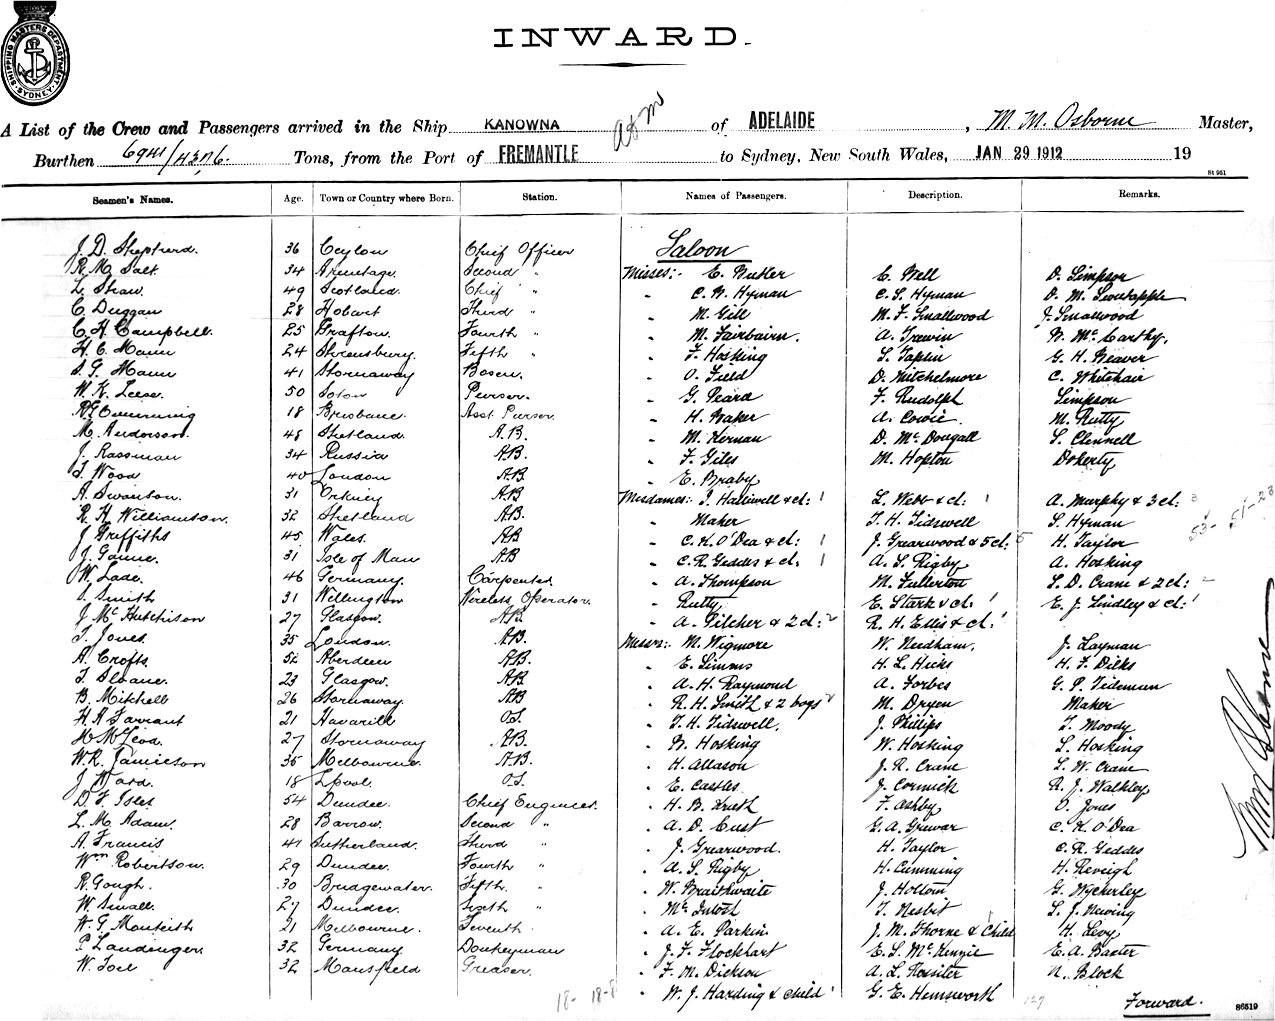 SHIPPING MASTERS DEPARTMENT. SYDNEY.
INWARD.
A List of the Crew and Passengers arrived in the Ship KANOWNA of ADELAIDE, M. M. Osborne Master,
Burthen 6941/ Tons, from the Port of FREMANTLE to Sydney, New South Wales, JAN 29 1912 19
St 961
Seamen's Names. Age. Town or Country where Born. Station. Names of Passengers. Description. Remarks.
J. D. Shepherd. 36 Ceylon Chief Officer Saloon
R. M. Salt 34 Armitage. Second " Misses:- E. Butler E. Bell D. Simpson
L. Shaw. 49 Scotland. Chief " " C. N. Hyman C. S. Hyman D. M.
C. Duggan 28 Hobart Third " " M. Gill M. F. Smallwood J. Smallwood
C. H. Campbell. 25 Grafton. Fourth " " M. Fairbairn A. Trewin N. McCarthy.
H. C. Mann 24 Shrewsbury. Fifth " " F. Hosking S. Taplin G. H. Weaver
S. G. Mann 41 Stornaway Bosun. " O. Field D. Mitchelmore C. Whitehair
W. K. Leese. 50 Soton Purser. " G. Peard F. Rudolph Simpson
R E Cumming 18 Brisbane. Asst Purser. " H. Baker A. Cowie. M. Rutty
M. Anderson. 48 Shetland. A.B. " M. Kernan D. McDougall S. Clennell
J. Rassman 34 Russia A.B. " F. Giles M. Hopton Doherty
T. Wood 40 London A.B. " E. Braby
A. Swanson. 31 Orkney A.B Mesdames:- J. Halliwell & ch: 1 L. Webb & ch: 1 A. Murphy & 3 ch: 3
R. H. Williamson. 32 Shetland A.B. " Maker T. H. Tidswell S. Hyman
J. Griffiths 45 Wales. AB " C. K. O'Dea & ch: 1 J. Grearwood & 5 ch: 5 H. Taylor
J. Gawne. 31 Isle of Man AB " C. R. Geddes & ch. 1 A. S. Rigby A. Hosking
W. Lade. 46 Germany. Carpenter " A. Thompson M. Fullerton S. D. Crane & 2 ch:
S. Smith 31 Wellington Wireless Operator. " Rutty E. Stark & ch: 1 E. J. Lindley & ch: 1
J. McHutchison 27 Glasgow. A.B " A. Pilcher & 2 ch: 2 R. H. Ellis & ch: 1
T. Jones. 35 London. A.B. Messrs:- M. Wigmore W. Needham. J. Layman
A. Crofts. 52 Aberdeen A.B. " E. Simms H. L. Hicks H. F. Dilks
T. Sloane. 23 Glasgow. AB " A. H. Raymond A. Forbes G. P. Tideman
B. Mitchell 26 Stornaway. AB " R. H. Smith & 2 boys 2 M. Dryen Maker
H. A. Tarrant 21 O.S. " T. H. Tidswell. J. Phillips T. Moody
McLeod. 27 Stornaway A.B. " N. Hosking W. Hosking L. Hosking
W. R. Jamieson 35 Melbourne A.B. " H. Allason J. R. Crane S. W. Crane
J. Ward. 18 Lpool. O.S. " E. Castles J. Cormick R. J. Walkley
D. F. Isles 54 Dundee. Chief Engineer. " H. B. F. Ashby O. Jones
L. M. Adam. 28 Barrow. Second " " A. D. Cust G. A. Grewar C. K. O'Dea
A. Francis 41 Sutherland. Third " " J. Grearwood. H. Taylor C. R. Geddes
Wm Robertson. 29 Dundee. Fourth " " A. S. Rigby H. Cumming H.
R. Gough. 30 Bridgewater. Fifth. " " W. Braithwaite J. Hollom G. Wycherley
W. Small. 27 Dundee Sixth " " McIntosh T. Nesbit L. J. Newing
W. G. Monteith 21 Melbourne. Seventh " A. E. Parkin J. M. Thorne & Child 1 H. Levy
P. Landinger. 32 Germany. Donkeyman " J. F. Flockhart E. S. McKenzie E. A. Baxter
W. Toel 32 Mansfield Greaser. " F. M. Dickson A. L. Rossiter N. Block
18- 18-8 " W. J. Harding & Child 1 G. E. Hemsworth 127 Forward.
53- 51-23
86519